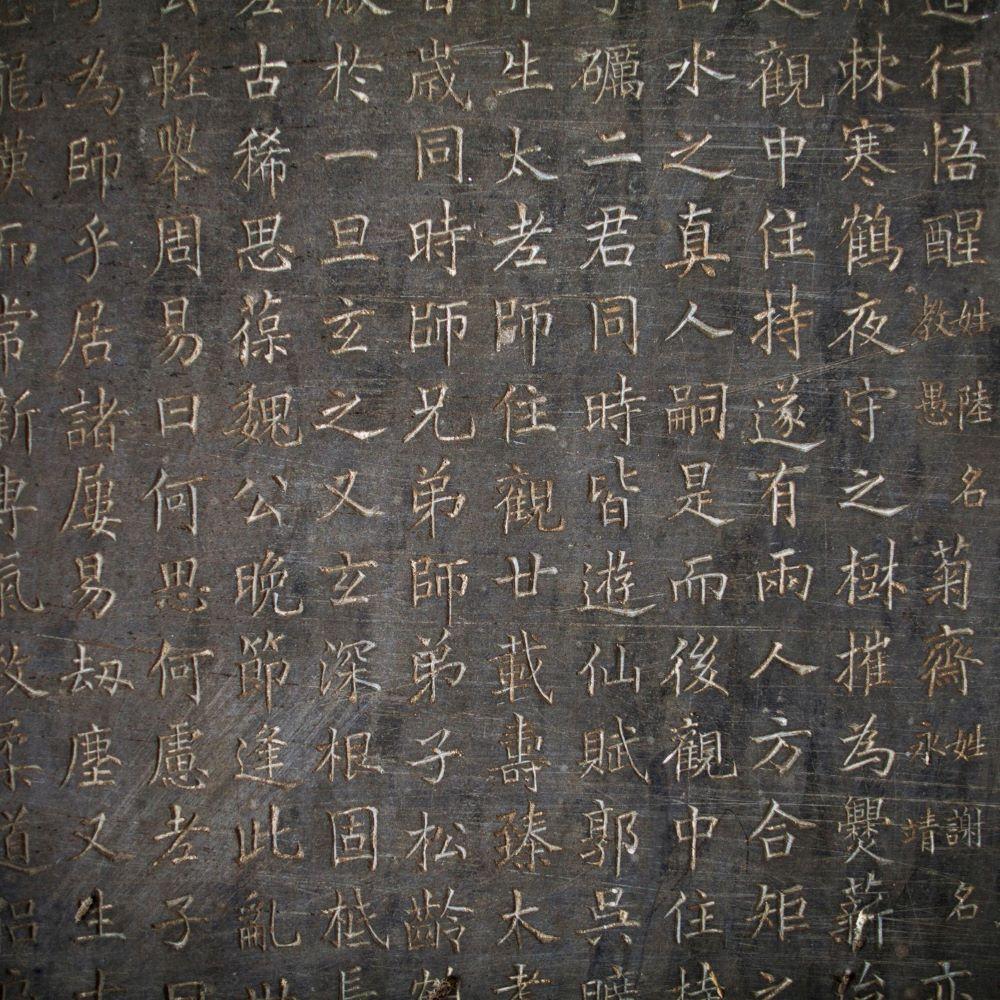 行悟醒姓陸名教愚菊齋姓謝名永靖亦
棘寒鶴夜守之樹摧為爨薪
觀中住持遂有雨人方合矩之
水之真人嗣是而後觀中住持
礪二君同時皆遊仙賦郭吳曠
生太老師住觀廿載壽臻木老
歲同時師兄弟師弟子松齡鶴
於一旦玄之又玄深根固柢長
古稀思葆魏公晚節逢此亂世
輕舉周易曰何思何慮老子曰
為師乎居諸屢易劫塵又生
龍漢而常新專氣致柔道侶